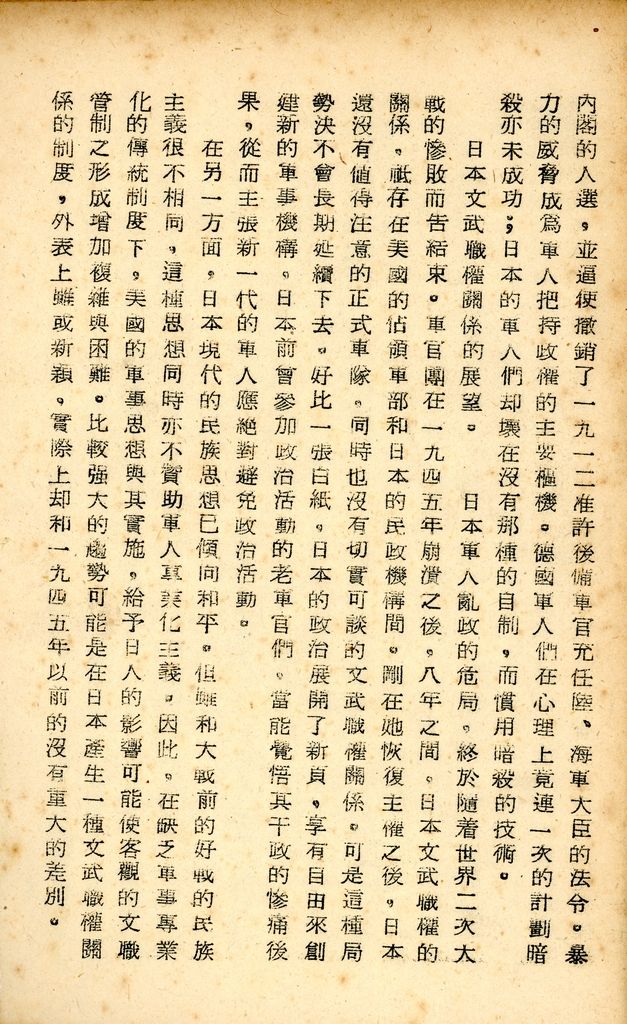 內閣的人選，並逼使撤銷了一九一二准許後備軍官充任陸、海軍大臣的法令。暴
力的威脅成爲軍人把持政權的主要樞機。德國軍人們在心理上竟連一次的計劃暗
殺亦未成功；日本的軍人們却壞在沒有那種的自制，而慣用暗殺的技術。
日本文武職權關係的展望。　日本軍人亂政的危局，終於隨着世界二次大
戰的慘敗而告結束。軍官團在一九四五年崩潰之後，八年之間，日本文武職權的
關係，祗存在美國的佔領軍部和日本的民政機構間。剛在她恢復主權之後，日本
還沒有値得注意的正式軍隊，同時也沒有切實可談的文武職權關係。可是這種局
勢決不會長期延續下去。好比一張白紙，日本的政治展開了新頁，享有自由來創
建新的軍事機構。日本前曾參加政治活動的老軍官們，當能覺悟其干政的慘痛後
果，從而主張新一代的軍人應絕對避免政治活動。
在另一方面，日本現代的民族思想已傾向和平。但雖和大戰前的好戰的民族
主義很不相同，這種思想同時亦不贊助軍人專業化主義。因此，在缺乏軍事專業
化的傳統制度下，美國的軍事思想與其實施，給予日人的影響可能使客觀的文職
管制之形成增加複雜與困難。比較强大的趨勢可能是在日本產生一種文武職權關
係的制度，外表上雖或新穎，實際上却和一九四五年以前的沒有重大的差別。